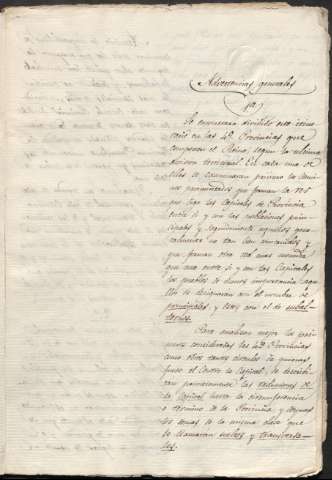 Advertencias generales
1ª
Se encuentra dividido este itine-
rario en las 49 Provincias que
componen el Reino, segun la ultima
division territorial. En cada una de
ellas se examinaran primero los cami-
nos que forman la
que liga las Capitales de Provincia
entre si y con las poblaciones prin-
cipales y seguidamente aquellos que
no tan y
que forman otra red mas
que une entre si y con las Capitales
los pueblos de menos importancia; aque-
llos se designaran con el nombre de
principales y estos con el de subal-
ternos.
Para analizar mejor los
consideradas las 49 Provincias
como otros tantos circulos de quienes
fuese el Centro la Capital, se describi-
ran primeramente los radiales de
la Capital hasta la circunferencia
o termino de la Provincia y despues
los demas de la misma clase que
se llamaran y transversa-
les.